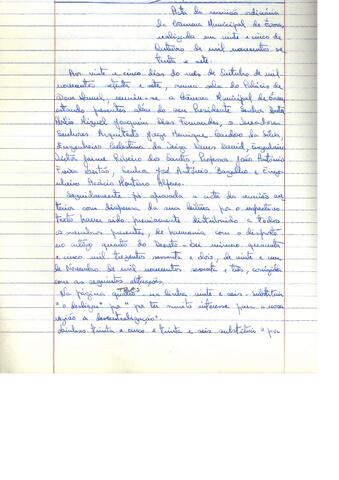 Acta da reunião ordinária
da Câmara Municipal de Évora,
realizada em vinte e cinco de
Outubro de mil novecentos se
tenta e sete.
Aos vinte e cinco dias do mês de Outubro de mil
novecentos setenta e sete, numa sala do Palácio de
Dom Manuel, reuniu-se a Câmara Municipal de Évora
estando presentes além do seu Presidente Senhor
Miguel Joaquim Fernandes, os Vereadores
Senhores Arquitecto Jorge Henrique da Silva,
Engenheiro Celestino David, Engenheiro
Victor Jaime Ribeiro dos Santos, Professor João António
Leitão, Senhor José António e Enge
nheiro Acácio Monteiro Alferes.
Seguidamente foi aprovada a acta da reunião an
terior com dispensa da sua leitura por o respectivo
texto haver sido previamente distribuído a todos
os membros presentes, de harmonia com o disposto
no artigo quarto do Decreto-Lei número quarenta
e cinco mil trezentos sessenta e dois, de vinte e um
de Novembro de mil novecentos sessenta e três, corrigida
com as seguintes alterações:
Na página - na linha vinte e seis - substituir
"o desligue" por "por ter muito interesse para a nossa
região a descentralização".
Linhas trinta e cinco e trinta e seis substituir "por